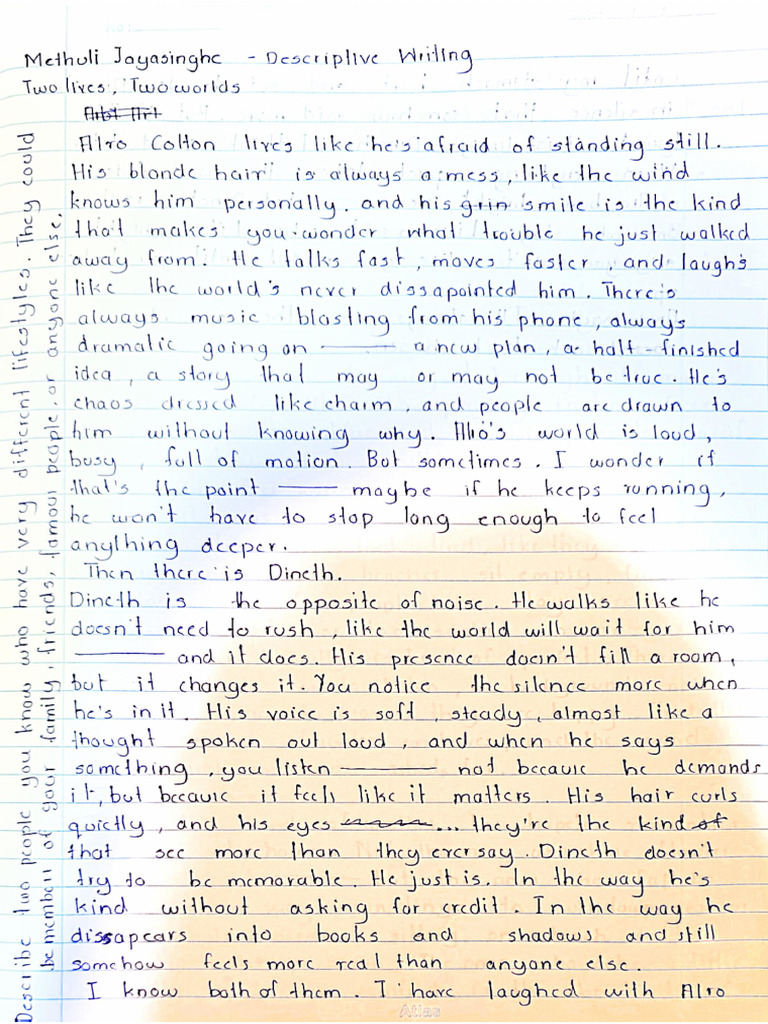 Methuli Jayasinghe - Descriptive Writing
Two lives, Two worlds
Describe two people you know who have very different lifestyles. They could
be members of your family, friends, famous people, or anyone else.
Alro Colton lives like he's afraid of standing still.
His blonde hair is always a mess, like the wind
knows him personally. and his grin smile is the kind
that makes you wonder what trouble he just walked
away from. He talks fast, moves faster, and laughs
like the world's never dissapointed him. There's
always music blasting from his phone, always
dramatic going on —— a new plan, a half-finished
idea, a story that may or may not be true. He's
chaos dressed like charm, and people are drawn to
him without knowing why. Alro's world is loud,
busy, full of motion. But sometimes. I wonder if
that's the point —— maybe if he keeps running,
he won't have to stop long enough to feel
anything deeper.
Then there is Dineth.
Dineth is the opposite of noise. He walks like he
doesn't need to rush, like the world will wait for him
—— and it does. His presence doesn't fill a room,
but it changes it. You notice the silence more when
he's in it. His voice is soft, steady, almost like a
thought spoken out loud, and when he says
something, you listen —— not because he demands
it, but because it feels like it matters. His hair curls
quietly, and his eyes ... they're the kind of
that see more than they ever say. Dineth doesn't
try to be memorable. He just is. In the way he's
kind without asking for credit. In the way he
dissapears into books and shadows and still
somehow feels more real than anyone else.
I know both of them. I have laughed with Alro
Atlas